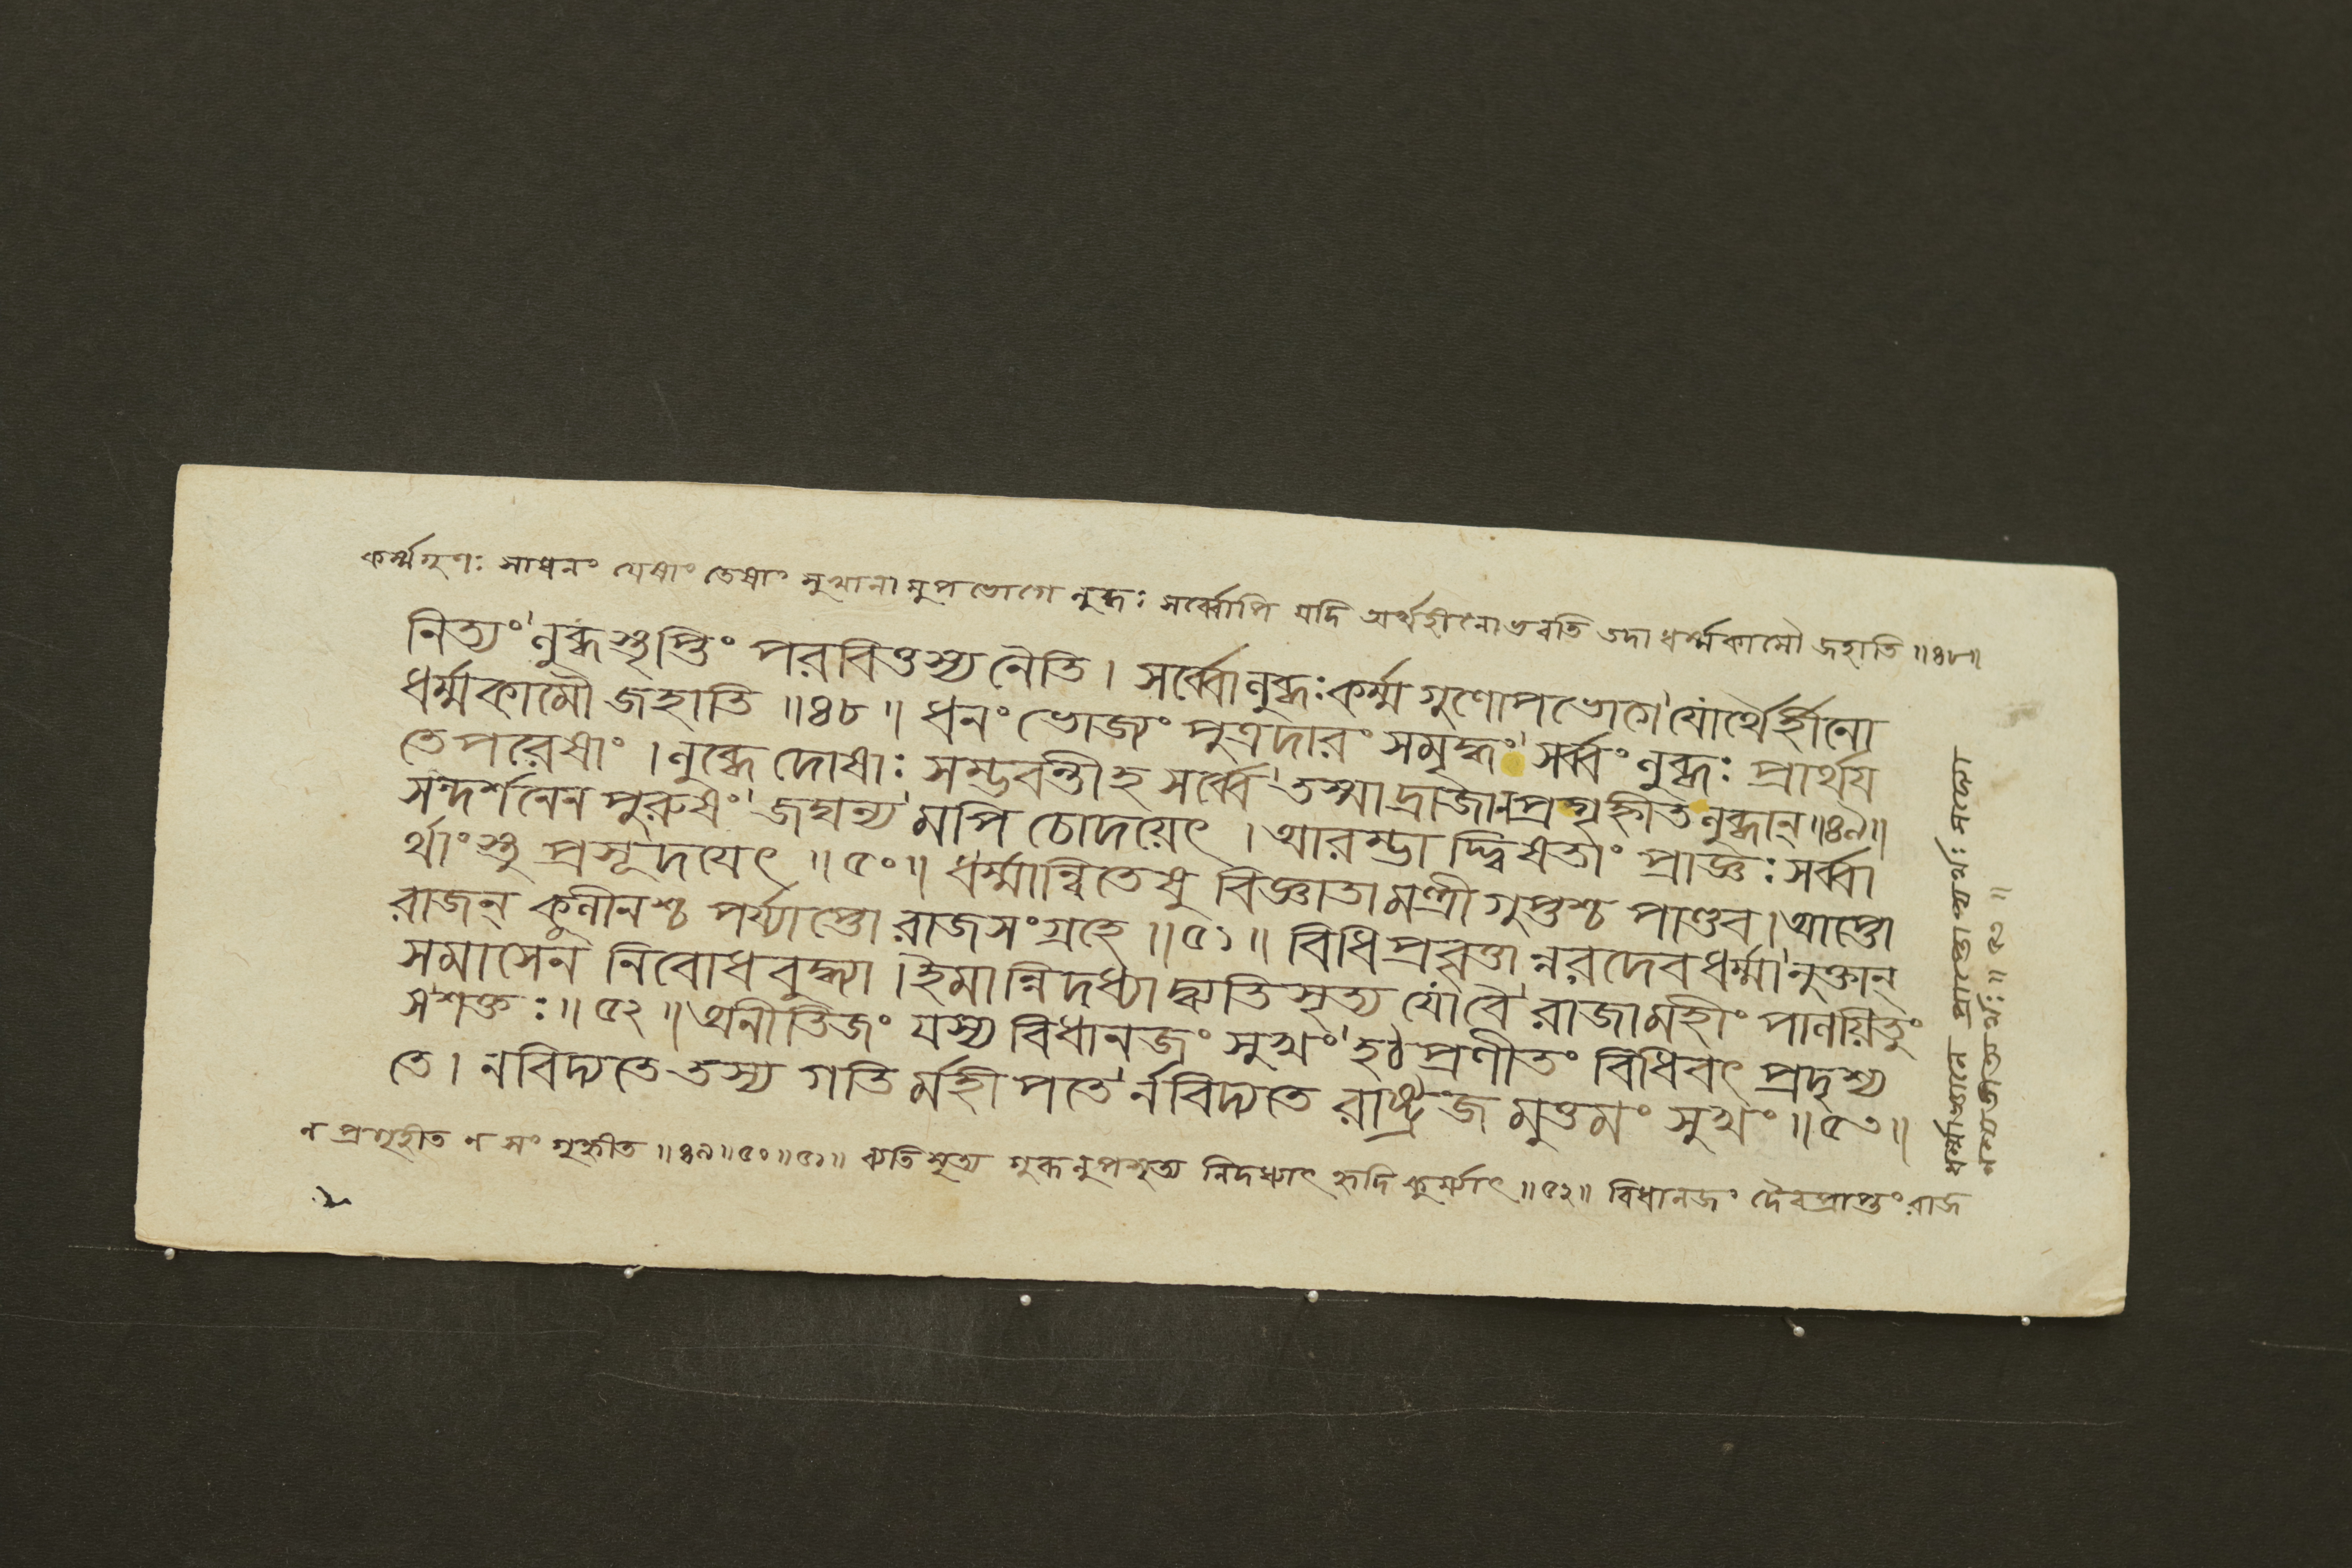 কর্ম্মগুণঃ সাধনং যেষাং তেষাং সুখানামুপভোগে লুব্ধঃ সর্ব্বোপি যদি অর্থহীনো ভবতি তদা ধর্ম্মকামৌ জহাতি ॥৪৮॥
নিত্যং লুব্ধস্তৃপ্তিং পরবিত্তস্য নৈতি। সর্ব্বোলুব্ধঃকর্ম্মগুণোপভোগে যোর্থৈর্হীনো
ধর্ম্মকামৌ জহাতি ॥৪৮॥ ধনং ভোজ্যং পুত্রদারং সমৃদ্ধং সর্ব্বং লুব্ধঃ প্রার্থয
তে পরেষাং। লুব্ধে দোষাঃ সম্ভবন্তীহ সর্ব্বে তস্মাদ্রাজানপ্রগৃহ্নীতলুব্ধান্ ॥৪৯॥
সন্দর্শনেন পুরুষং জঘন্যমপি চোদয়েৎ। আরম্ভা দ্দ্বিষতাং প্রাজ্ঞঃ সর্ব্বা
র্থাংস্তু প্রসূদযেৎ ॥৫০॥ ধর্ম্মান্বিতেষু বিজ্ঞাতামন্ত্রী গুপ্তশ্চ পাণ্ডব। আপ্তো
রাজন্ কুলীনশ্চ পর্য্যাপ্তো রাজসংগ্রহে ॥৫১॥ বিধিপ্রবৃত্তান্নরদেবধর্ম্মানুক্তান্
সমাসেন নিবোধবুদ্ধ্যা। ইমান্নিদধ্যাদ্ব্যতিসৃত্য যোবৈ রাজামহীং পালয়িতুং
সশক্তঃ ॥৫২॥ অনীতিজং যস্য বিধানজং সুখং হঠপ্রণীতং বিধিবৎ প্রদৃশ্য
তে। নবিদ্যতে তস্য গতির্মহীপতের্নবিদ্যতে রাষ্ট্রজমুত্তমং সুখং ॥৫৩॥
ন প্রগৃহীত ন সংগৃহ্নীত ॥৪৯॥৫০॥৫১॥ ব্যতিসৃত্য গুরূনুপসৃত্য নিদধ্যাৎ হৃদি কুর্য্যাৎ ॥৫২॥ বিধানজং দৈবপ্রাপ্তং রাজ